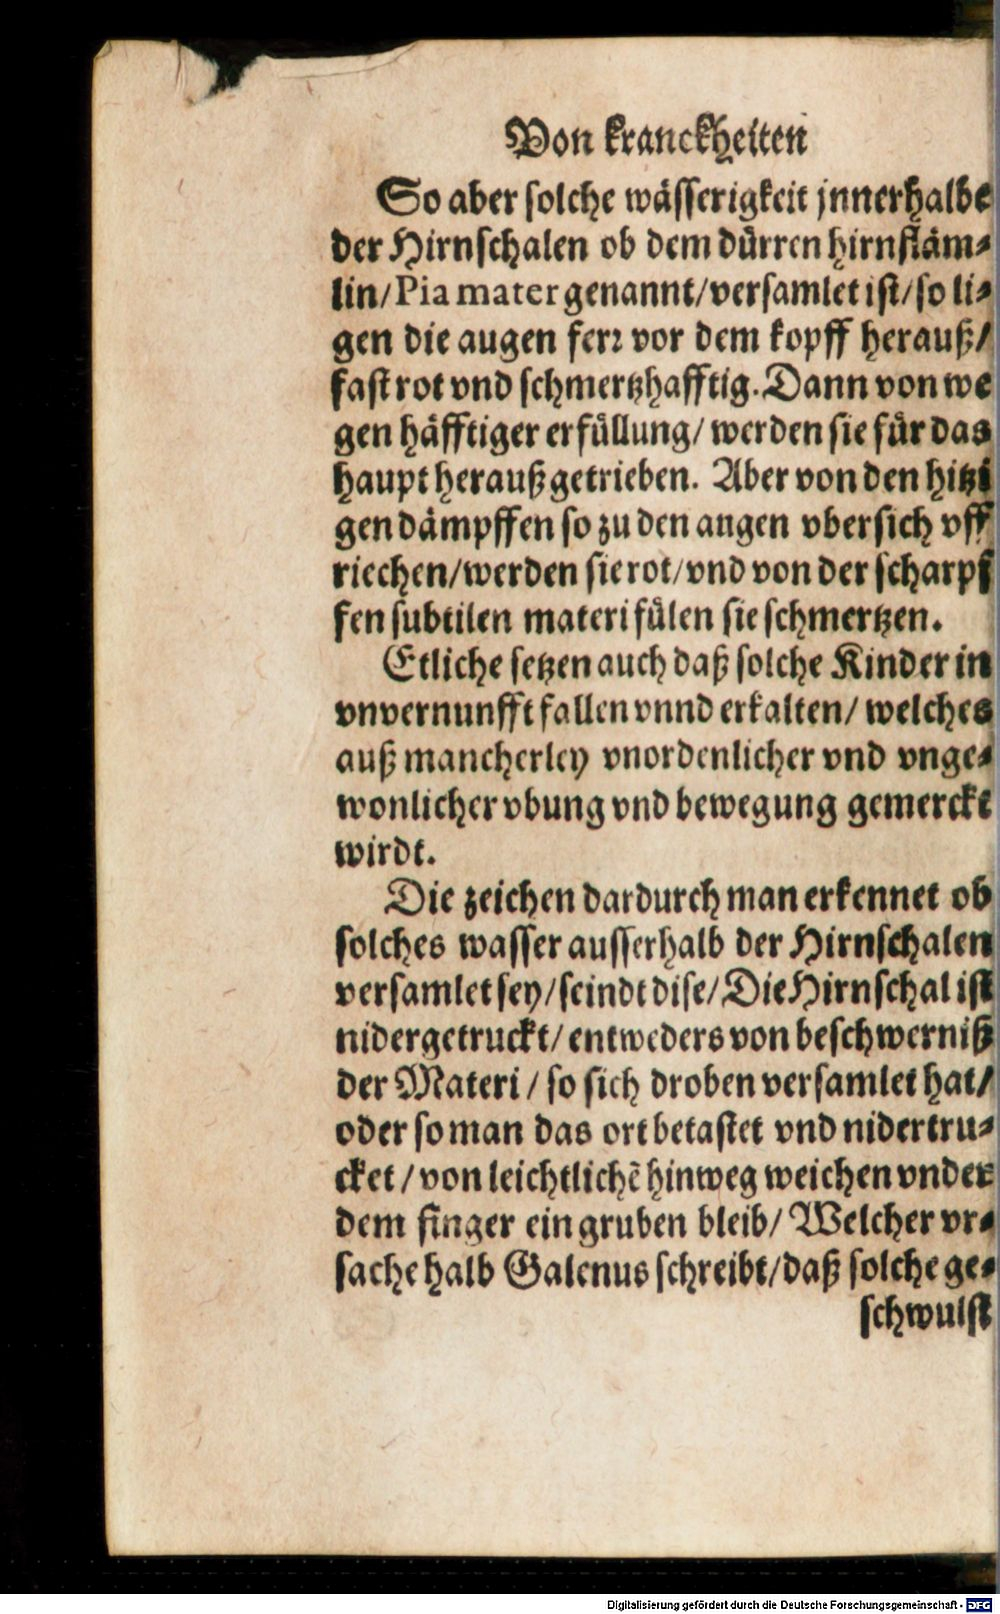 Von kranckheiten
So aber solche wässerigkeit jnnerhalbe
der Hirnschalen ob dem dürren hirnfläm⸗
lin/ Pia mater genannt/ versamlet ist/ so li⸗
gen die augen ferꝛ vor dem kopff herauß/
fast rot vnd schmertzhafftig. Dann von we
gen häfftiger erfüllung/ werden sie für das
haupt herauß getrieben. Aber von den hitzi
gen dämpffen so zu den augen vbersich vff
riechen/ werden sie rot/ vnd von der scharpf
fen subtilen materi fülen sie schmertzen.
Etliche setzen auch daß solche Kinder in
vnvernunfft fallen vnnd erkalten/ welches
auß mancherley vnordenlicher vnd vnge⸗
wonlicher vbung vnd bewegung gemerckt
wirdt.
Die zeichen dardurch man erkennet ob
solches wasser ausserhalb der Hirnschalen
versamlet sey/ seindt dise/ Die Hirnschal ist
nidergetruckt/ entweders von beschwerniß
der Materi / so sich droben versamlet hat/
oder so man das ort betastet vnd nidertru⸗
cket / von leichtlichē hinweg weichen vnder
dem finger ein gruben bleib/ Welcher vr⸗
sache halb Galenus schreibt/ daß solche ge⸗
schwulst
Digitalisierung gefördert durch die Deutsche Forschungsgemeinschaft - DFG